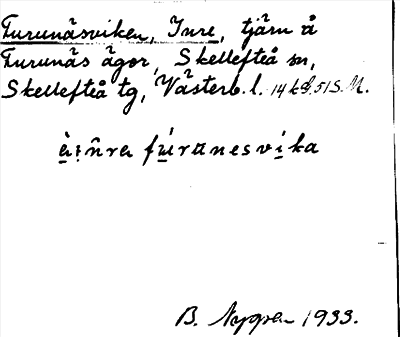 Furunäsviken, Inre, tjärn å
Furunäs ägor, Skellefteå sn,
Skellefteå tg, Västerb. l. 14 k d. 51 S. M.
à i n̂ra fúrɑnesvíka
B. Nyppen 1933.